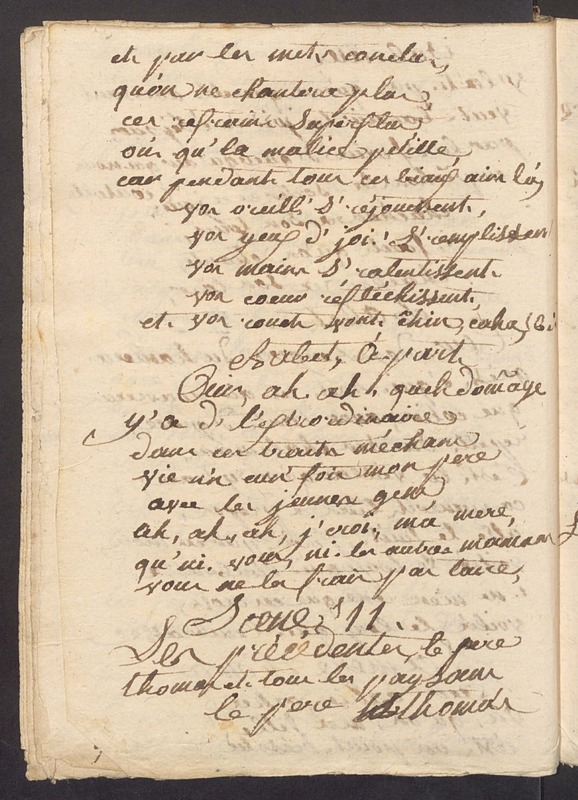 et par les mets conclus,
qu'on ne chantera plus
ces refrains superflus
où qu'la malice petille
car pendant tous ces biaux airs là,
vos oreill's s'rejouissent,
vos yeux d'joi's s'remplissent
vos mains s'ralentissent
vos coeurs réfléchissent,
et vos couets vont chin, caha,
Babet, à part
Ouai ah, ah, queu domage
y'a d'l'extrordinaire
dans ces traits méchans
vien'n eun' fois mon pere
avec les jeunes gens
ah, ah, ah, j'crois, ma mere,
qu'ni vous, ni les autres mamans
vous ne les f'rais pas taire,
Scene 11.
Les précédentes, le pere
thomas et tous les paysans
le pere thomas